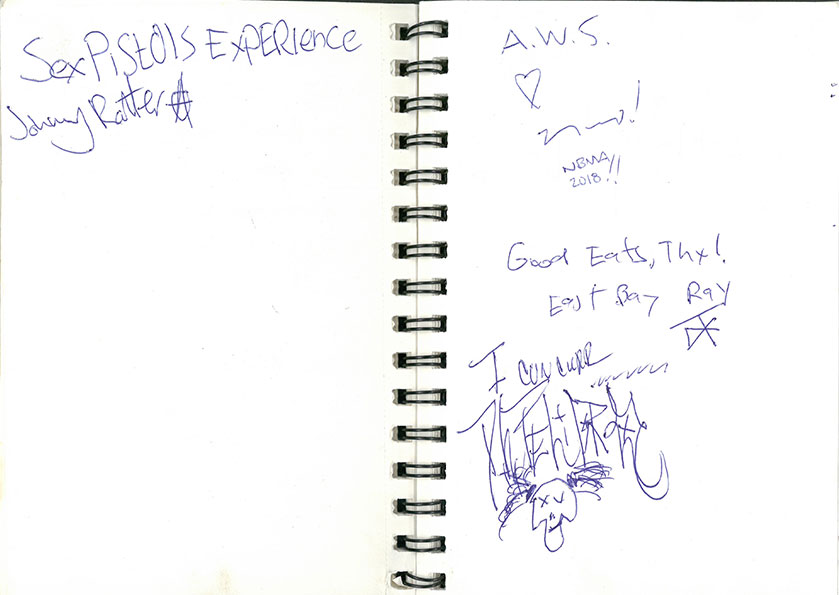 Sex PiStOlS ExPERIence
Johnny Rotter
A.W.S.
NBMA
2018!!
Good Eats, Thx!
East Bay Ray
I CONCURR